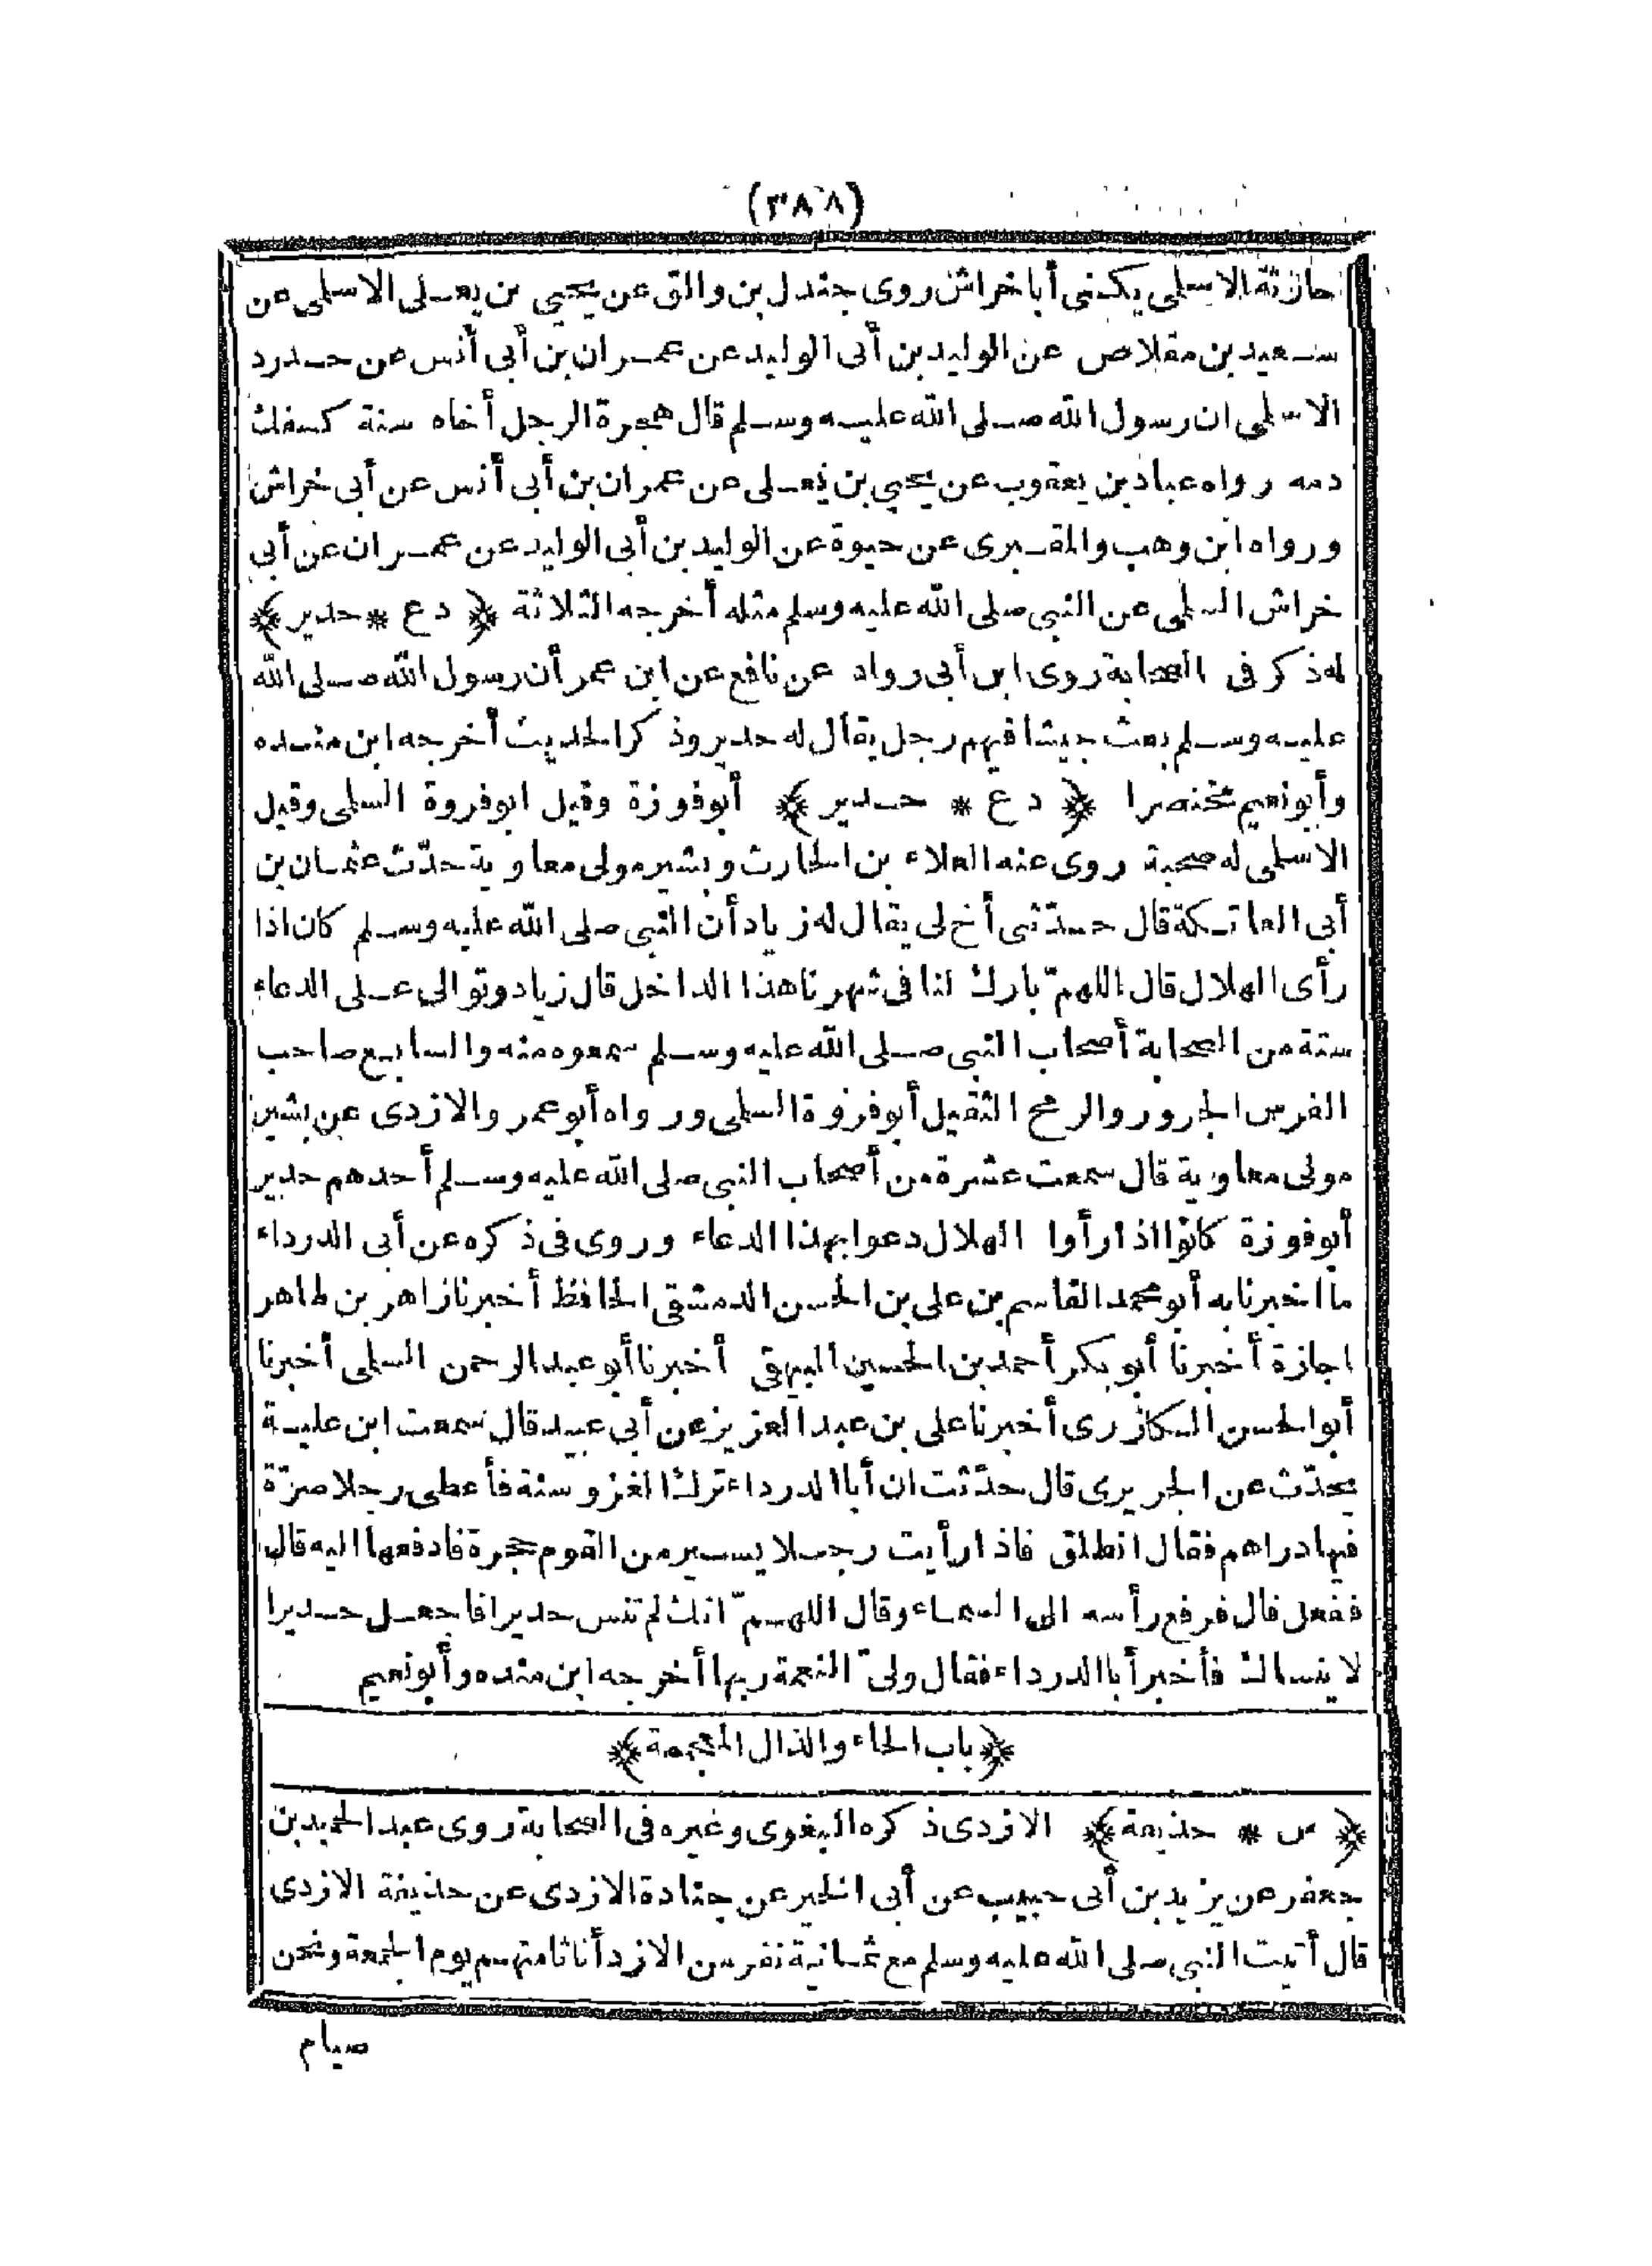 (٣٨٨)
حارثة الاسلمى يكنى أبا خراش روى جندل بن والق عن يحيى بن يعلى الاسلمى عن
سعيد بن مقلاص عن الوليد بن أبى الوليد عن عمران بن أبى أنس عن حدرد
الاسلمى ان رسول الله صلى الله عليه وسلم قال هجرة الرجل أخاه سنة كسفك
دمه رواه عباد بن يعقوب عن يحيى بن يعلى عن عمران بن أبى أنس عن أبى خراش
ورواه ابن وهب والمقبرى عن حيوة عن الوليد بن أبى الوليد عن عمران عن أبى
خراش السلمى عن النبى صلى الله عليه وسلم مثله أخرجه الثلاثة ﴿ دع * حدير ﴾
له ذكر فى الصحابة روى ابن أبى رواد عن نافع عن ابن عمر أن رسول الله صلى الله
عليه وسلم بعث جيشا فيهم رجل يقال له حدير وذكر الحديث أخرجه ابن منده
وأبو نعيم مختصرا ﴿ دع * حدير ﴾ أبو فوزة وقيل ابو فروة السلمى وقيل
الاسلمى له صحبة روى عنه العلاء بن الحارث وبشير مولى معاوية حدّث عثمان بن
أبى العاتكة قال حدّثنى أخ لى يقال له زياد أن النبى صلى الله عليه وسلم كان اذا
رأى الهلال قال اللهمّ بارك لنا فى شهرنا هذا الداخل قال زياد وتوالى على الدعاء
ستة من الصحابة أصحاب النبى صلى الله عليه وسلم سمعوه منه والسابع صاحب
الفرس الجرور والرمح الثقيل أبو فروة السلمى ورواه أبو عمرو الازدى عن بشير
مولى معاوية قال سمعت عشرة من أصحاب النبى صلى الله عليه وسلم أحدهم حدير
أبو فوزة كانوا اذا رأوا الهلال دعوا بهذا الدعاء وروى فى ذكره عن أبى الدرداء
ما اخبرنا به أبو محمد القاسم بن على بن الحسن الدمشقى الحافظ أخبرنا زاهر بن طاهر
اجازة أخبرنا أبو بكر أحمد بن الحسين البيهقى أخبرنا أبو عبد الرحمن السلمى أخبرنا
أبو الحسن الكارزى أخبرنا على بن عبد العزيز عن أبى عبيد قال سمعت ابن علية
يحدّث عن الجريرى قال حدّثت ان أبا الدرداء ترك الغزو سنة فأعطى رجلا صرّة
فيها دراهم فقال انطلق فاذا رأيت رجلا يسير من القوم حجرة فادفعها اليه قال
ففعل قال فرفع رأسه الى السماء وقال اللهمّ انك لم تنس حديرا فاجعل حديرا
لا ينساك فأخبر أبا الدرداء فقال ولىّ النعمة ربها أخرجه ابن منده وأبو نعيم
﴿ باب الحاء والذال المعجمة ﴾
﴿ س * حذيمة ﴾ الازدى ذكره البغوى وغيره فى الصحابة روى عبد الحميد بن
جعفر عن يزيد بن أبى حبيب عن أبى الخير عن جنادة الازدى عن حذيفة الازدى
قال أتيت النبى صلى الله عليه وسلم مع ثمانية نفر من الازد أنا ثامنهم يوم الجمعة ونحن
صيام